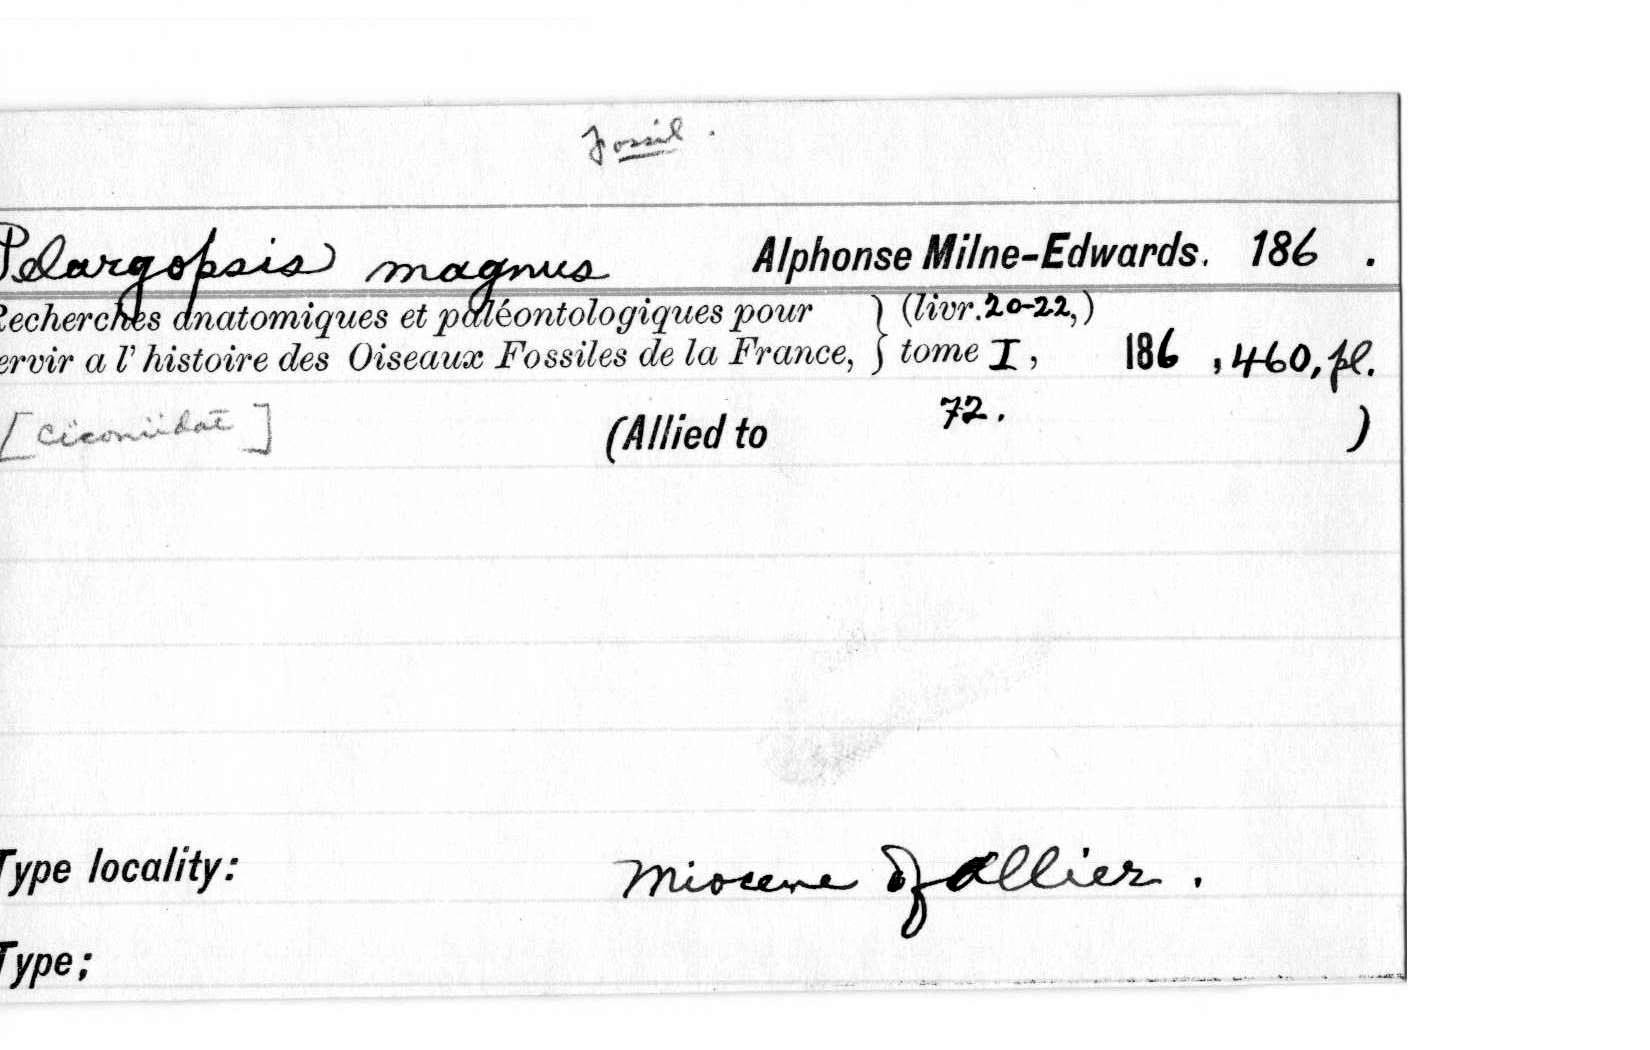 Fossil.
Pelargopsis magnus Alphonse Milne-Edwards. 186 .
Recherches anatomiques et paléontologiques pour } (livr. 20-22,)
ervir a l' histoire des Oiseaux Fossiles de la France, } tome I, 186 , 460, pl.
72.
[Ciconiidae] (Allied to )
Type locality: Miocene of Allier.
Type;